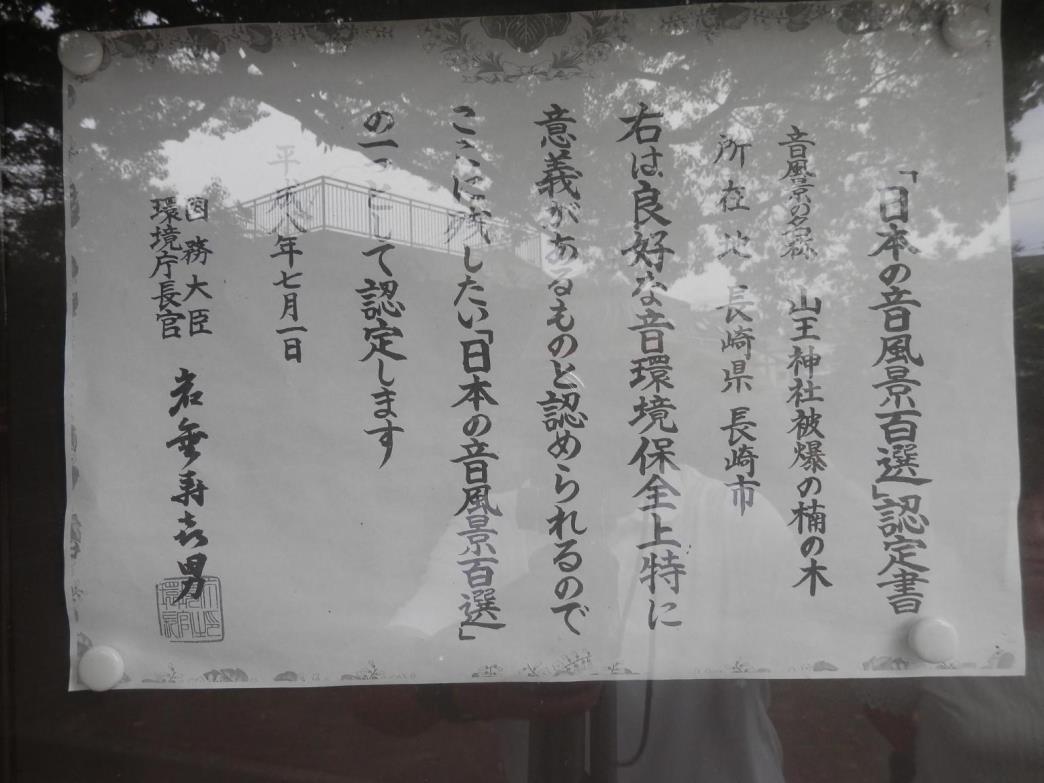 「日本の音風景百選」認定書
音風景の名称 山王神社被爆の楠の木
所在地 長崎県長崎市
右は良好な音環境保全上特に
意義があるものと認められるので
ここに残したい「日本の音風景百選」
の一つとして認定します
平成八年七月一日
国務大臣
環境庁長官 岩垂寿喜男